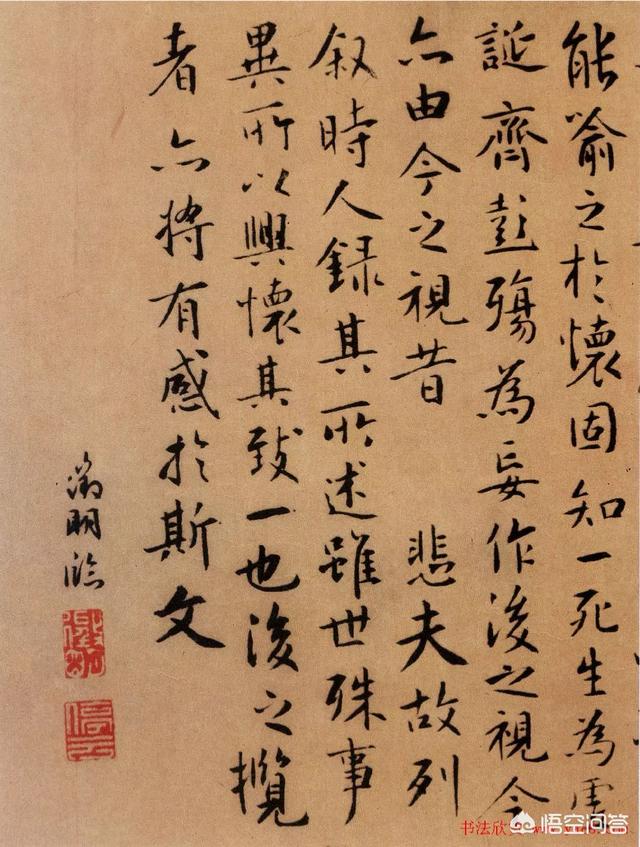 能喻之於懷固知一死生為虛
誕齊彭殤為妄作後之視今
亦由今之視昔 悲夫故列
敘時人錄其所述雖世殊事
異所以興懷其致一也後之攬
者亦將有感於斯文
徵明臨
徵明
停云
书法欣
悟空问答